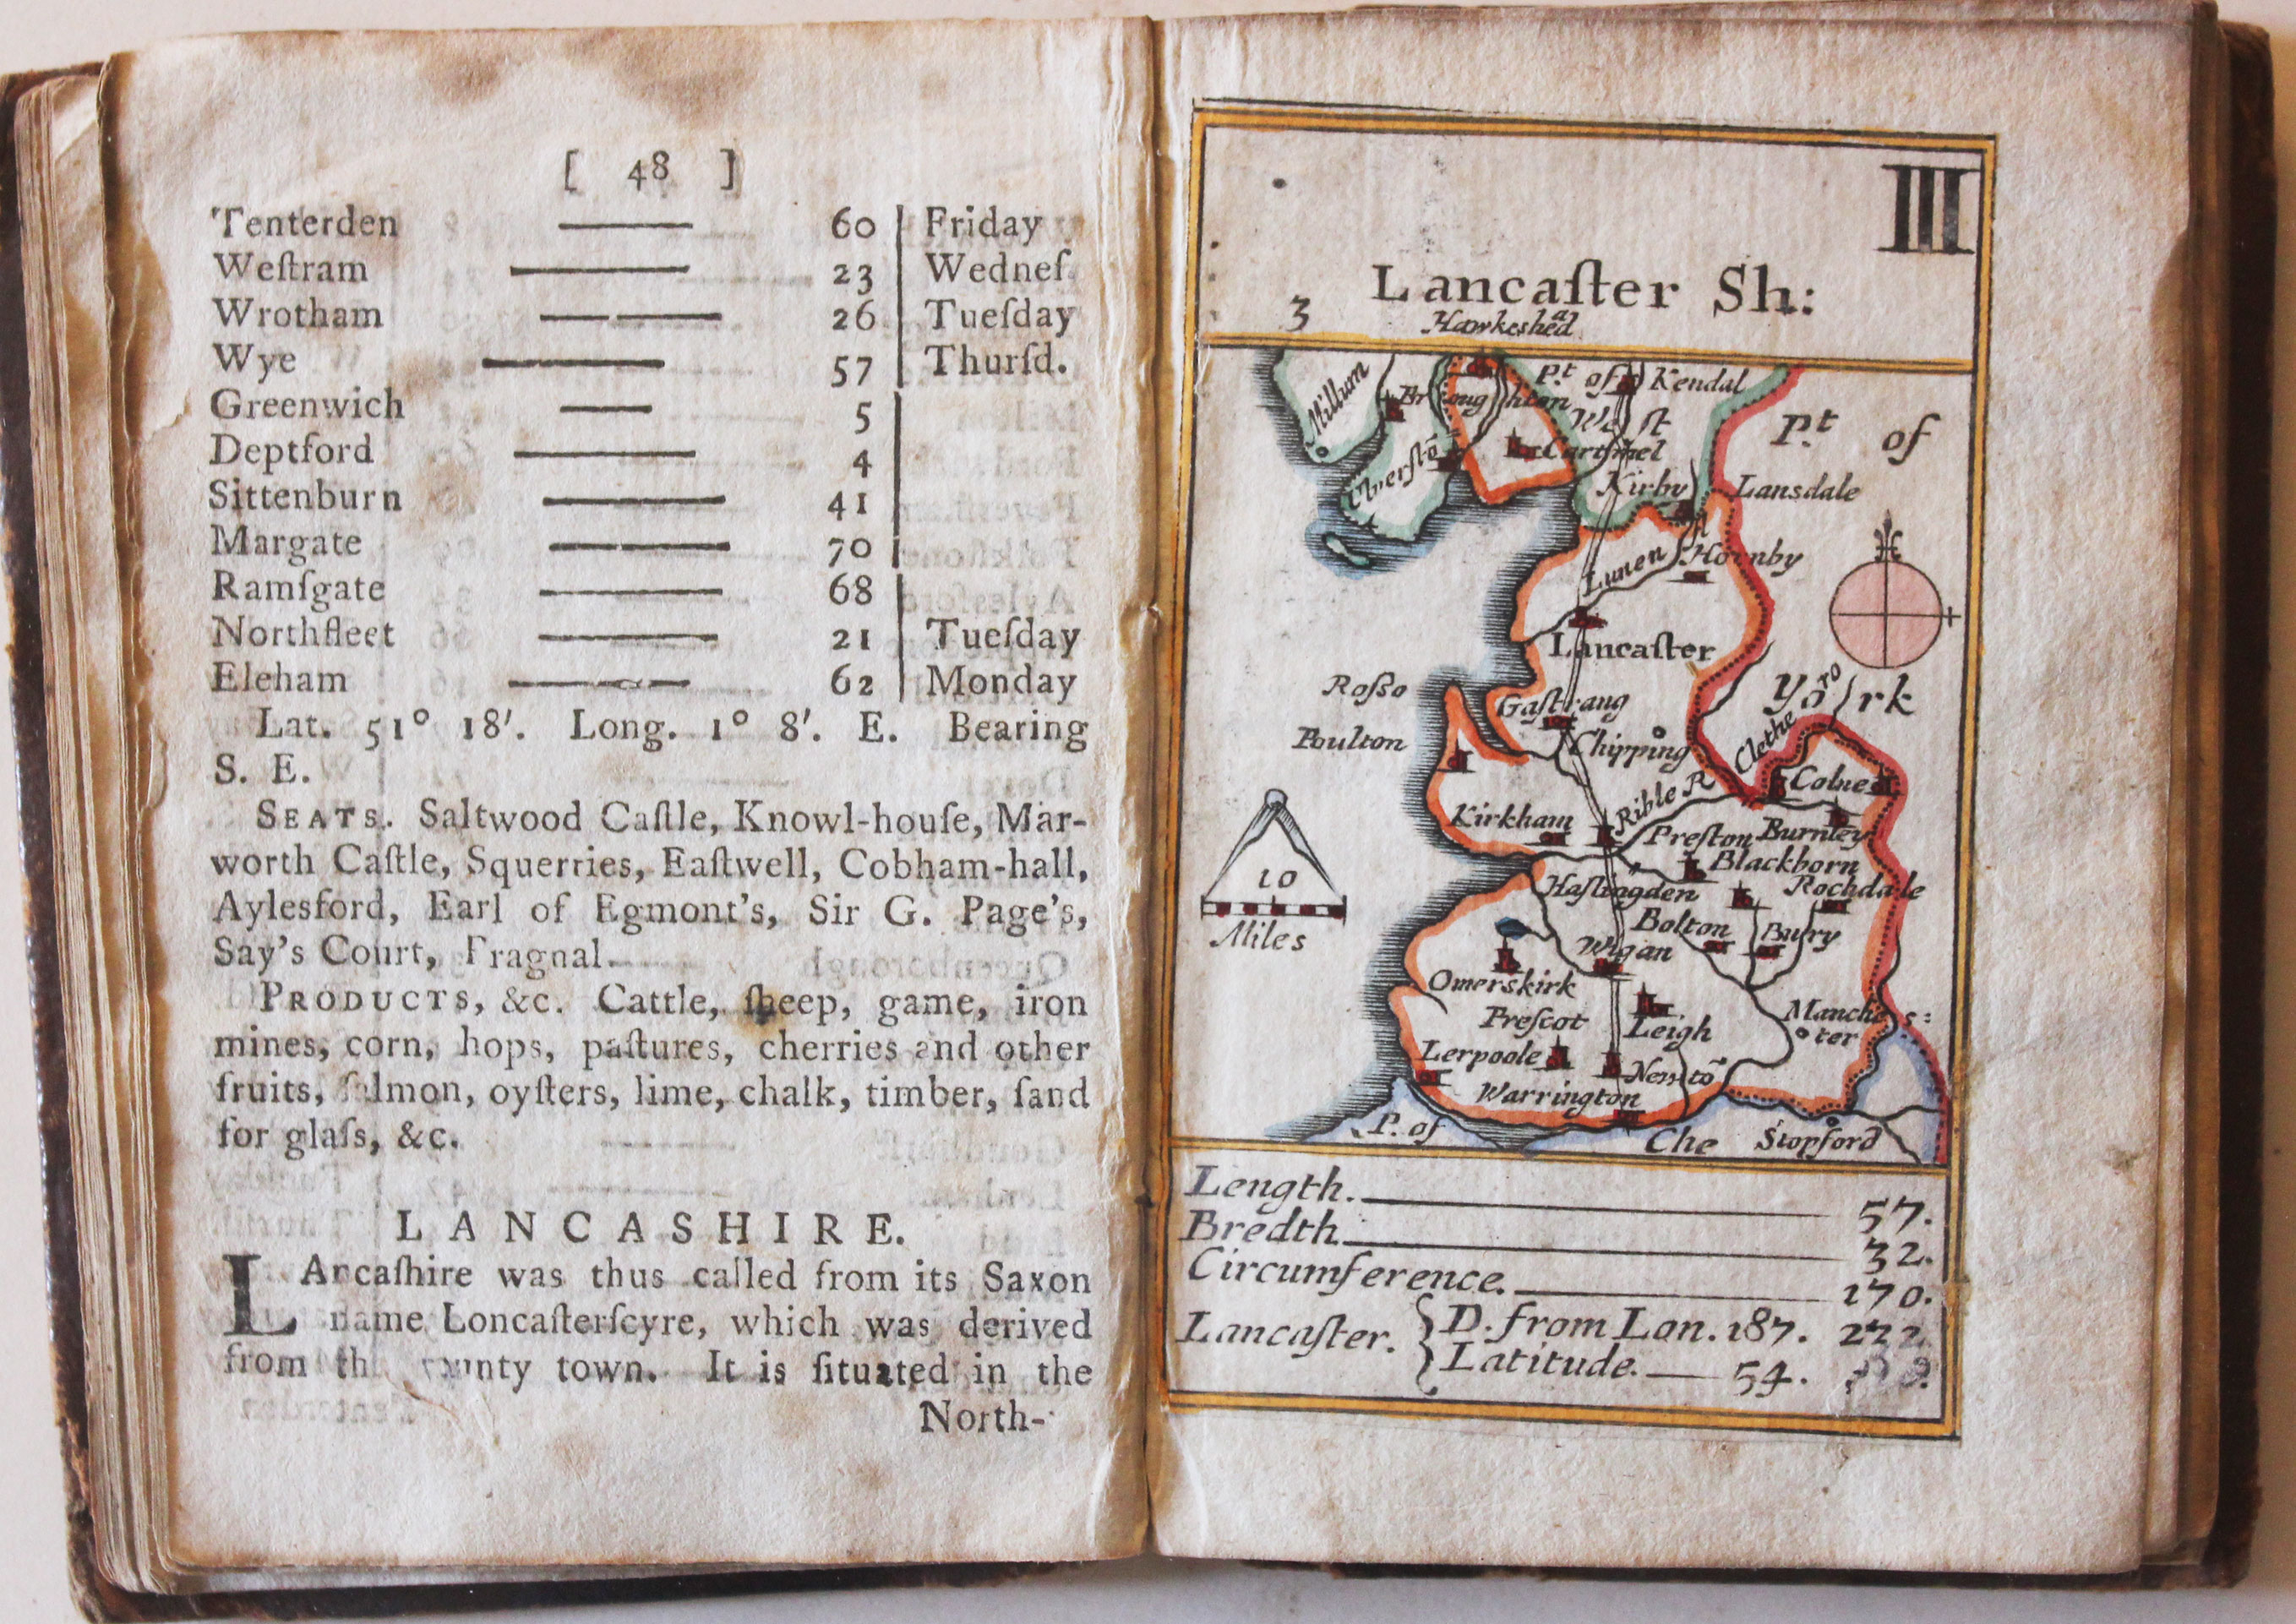 [ 48 ]
Tenterden 60 Friday
Weſtram 23 Wedneſ.
Wrotham 26 Tueſday
Wye 57 Thurſd.
Greenwich 5
Deptford 4
Sittenburn 41
Margate 70
Ramſgate 68
Northfleet 21 Tueſday
Eleham 62 Monday
Lat. 51° 18′. Long. 1° 8′. E. Bearing
S. E.
SEATS. Saltwood Caſtle, Knowl-houſe, Mar-
worth Caſtle, Squerries, Eaſtwell, Cobham-hall,
Aylesford, Earl of Egmont's, Sir G. Page's,
Say's Court, Fragnal.
PRODUCTS, &c. Cattle, ſheep, game, iron
mines, corn, hops, paſtures, cherries and other
fruits, ſalmon, oyſters, lime, chalk, timber, ſand
for glaſs, &c.
LANCASHIRE.
LAncaſhire was thus called from its Saxon
name Loncaſterſcyre, which was derived
from the county town. It is ſituated in the
North-
III
3 Lancaſter Sh:
Hawkeshead
Millum
Broughton
Pt of Weſt
Kendal
Pt of
Ulverstõ
Cartſmel
Kirby
Lansdale
Lunen R
Hornby
Lancaſter
Roſso
Gaſtrang
Yorkro
Poulton
Chipping
Clethe
Colne
Rible R
Kirkham
Preſton
Burnley
Blackborn
10
Miles
Haſlingden
Rochdale
Bolton
Bury
Wigan
Omerskirk
Preſcot
Leigh
Manches:
ter
Lerpoole
Newtõ
Warrington
P. of
Che
Stopford
Length. 57.
Bredth. 32.
Circumference. 170.
Lancaſter. D. from Lon. 187. 232
Latitude. 54.